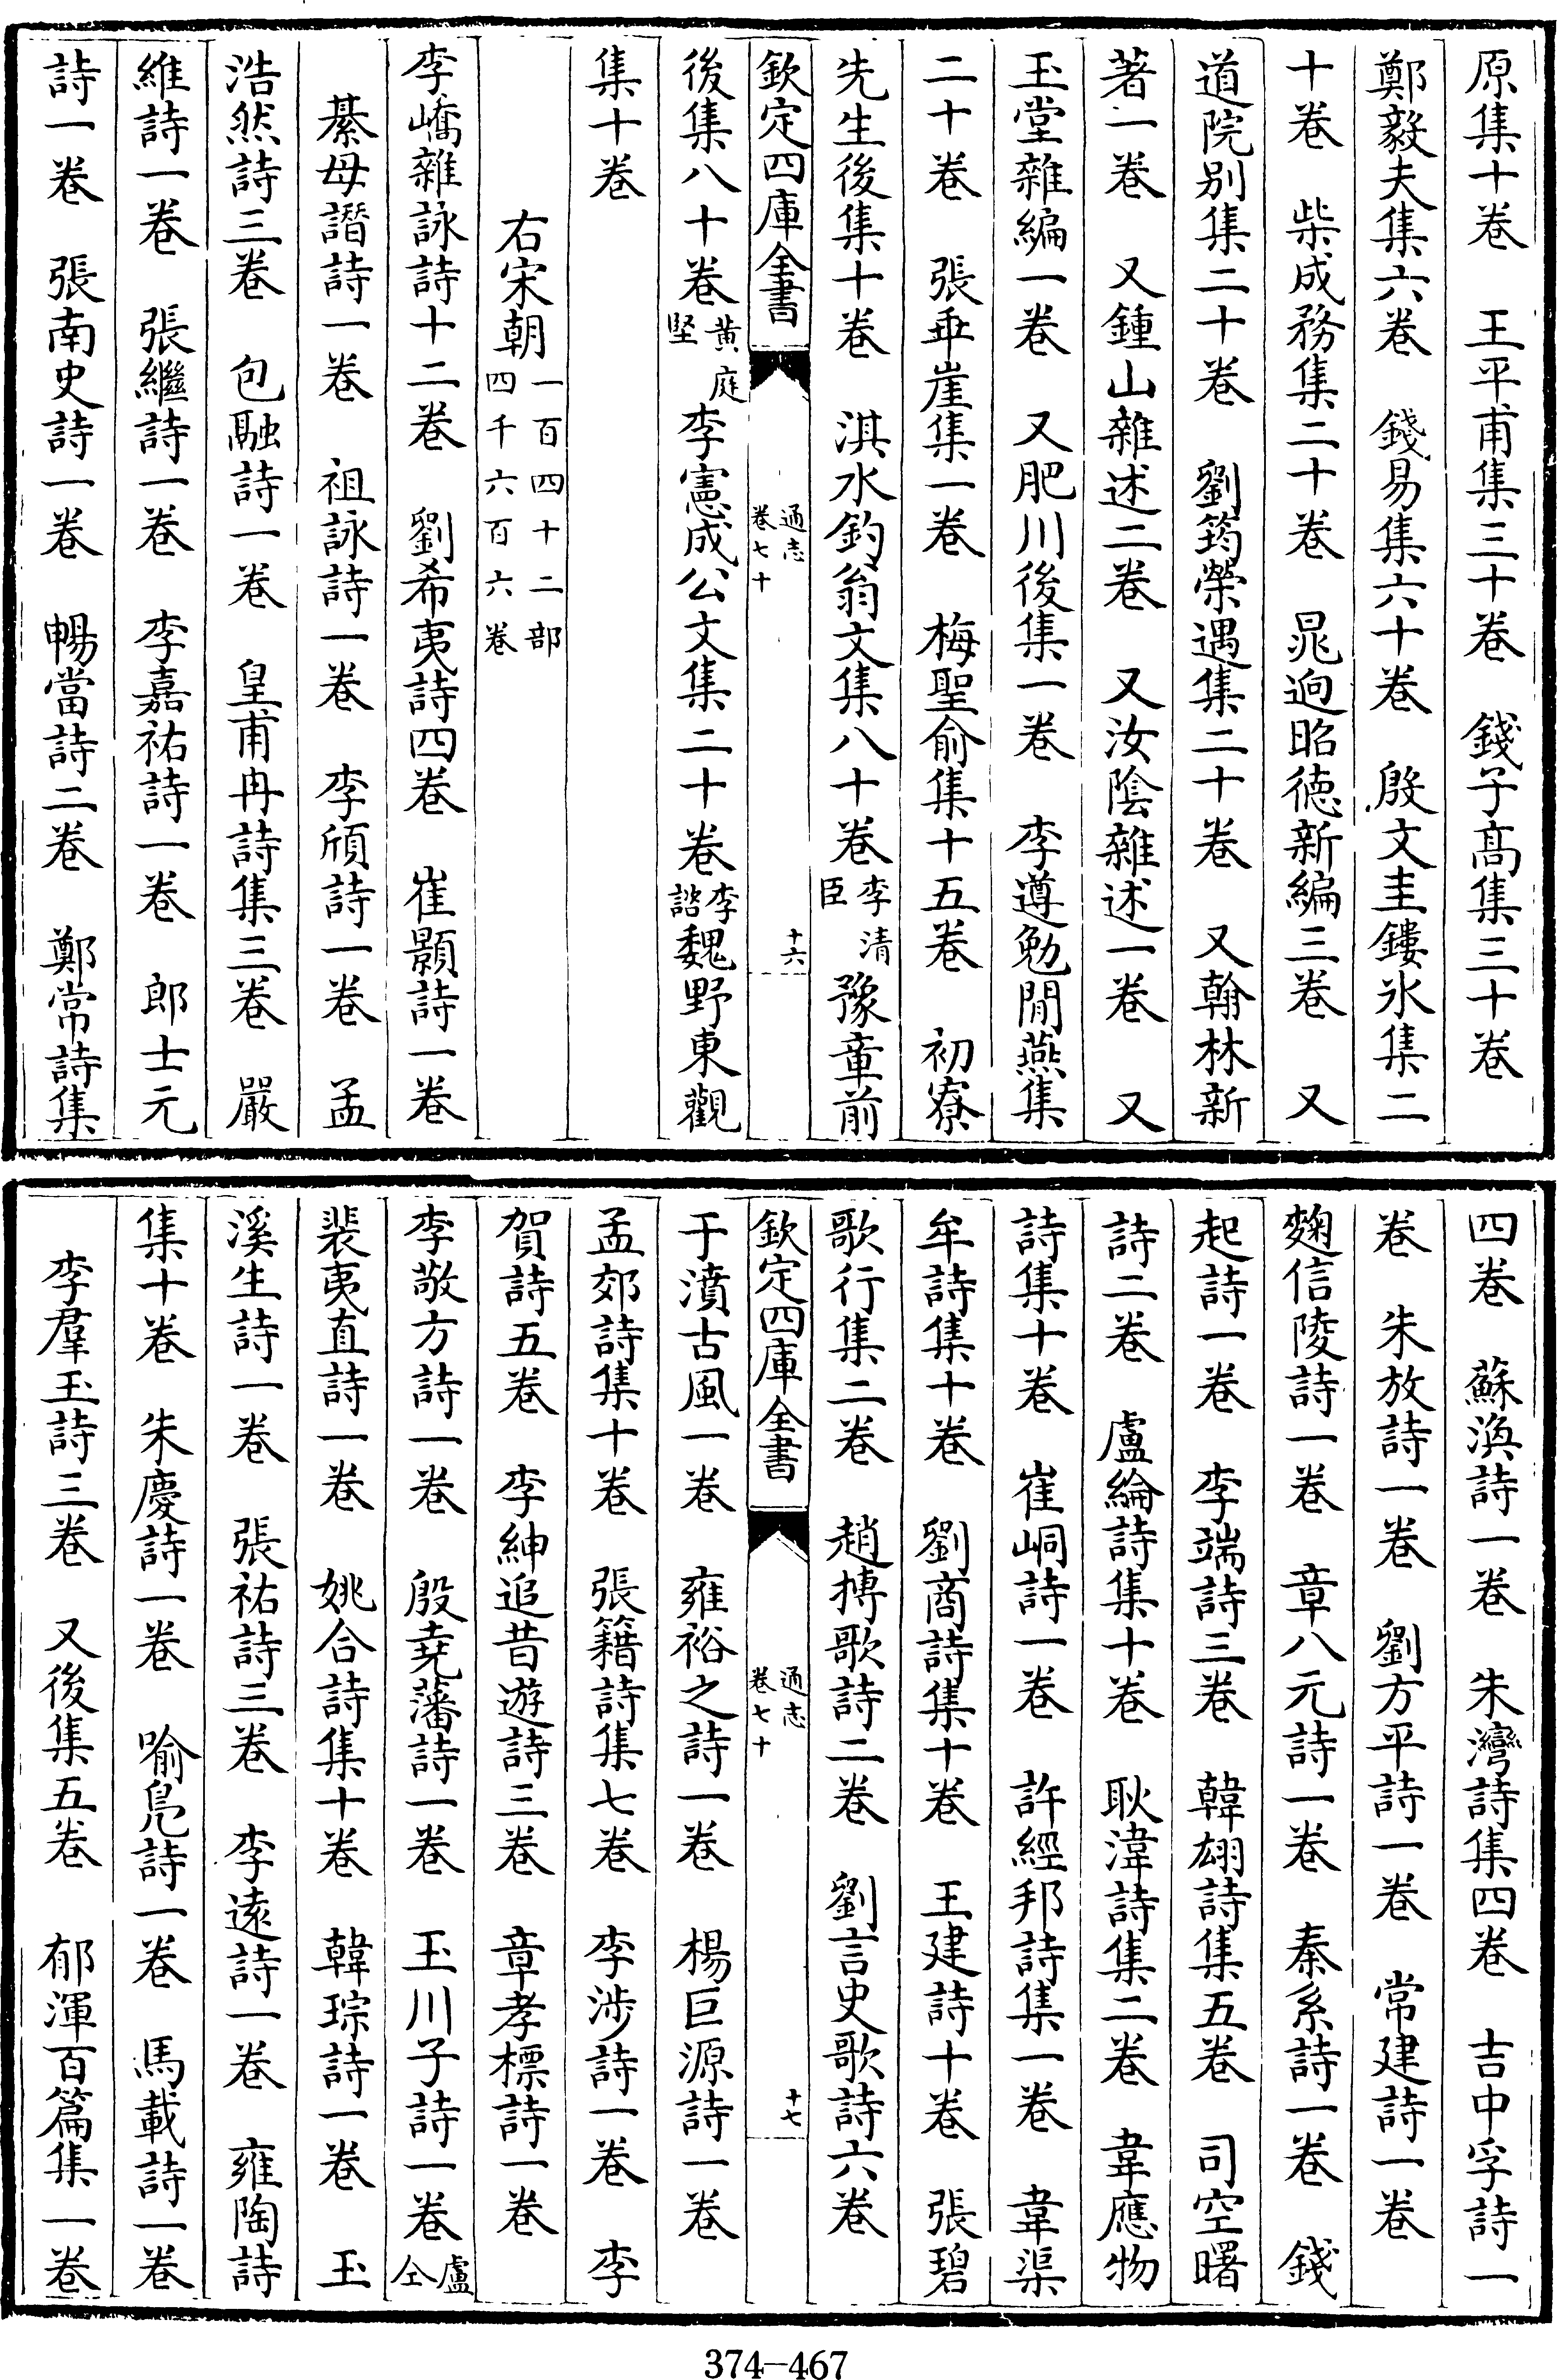 原集十卷　王平甫集三十卷　錢子髙集三十卷
鄭毅夫集六卷　錢易集六十卷　殷文圭鏤氷集二
十卷　柴成務集二十卷　晁逈昭徳新編三卷　又
道院别集二十卷　劉筠榮遇集二十卷　又翰林新
著一卷　又鍾山雜述二卷　又汝陰雜述一卷　又
玉堂雜編一卷　又肥川後集一卷　李遵勉閒燕集
二十卷　張乖崖集一卷　梅聖俞集十五卷　初寮
先生後集十卷　淇水釣翁文集八十卷李清臣　豫章前
欽定四庫全書　通志卷七十　十六
後集八十卷黄庭堅　李憲成公文集二十卷李諮　魏野東觀
集十卷
右宋朝一百四十二部四千六百六卷
李嶠雜詠詩十二卷　劉希夷詩四卷　崔顥詩一卷
綦母譖詩一卷　祖詠詩一卷　李頎詩一卷　孟
浩然詩三卷　包融詩一卷　皇甫冉詩集三卷　嚴
維詩一卷　張繼詩一卷　李嘉祐詩一卷　郎士元
詩一卷　張南史詩一卷　暢當詩二卷　鄭常詩集
四卷　蘇渙詩一卷　朱灣詩集四卷　吉中孚詩一
卷　朱放詩一卷　劉方平詩一卷　常建詩一卷
麴信陵詩一卷　章八元詩一卷　秦系詩一卷　錢
起詩一卷　李端詩三卷　韓翃詩集五卷　司空曙
詩二卷　盧綸詩集十卷　耿湋詩集二卷　韋應物
詩集十卷　崔峒詩一卷　許經邦詩集一卷　韋渠
牟詩集十卷　劉商詩集十卷　王建詩十卷　張碧
歌行集二卷　趙摶歌詩二卷　劉言史歌詩六卷
欽定四庫全書　通志卷七十　十七
于濆古風一卷　雍裕之詩一卷　楊巨源詩一卷
孟郊詩集十卷　張籍詩集七卷　李渉詩一卷　李
賀詩五卷　李紳追昔遊詩三卷　章孝標詩一卷
李敬方詩一卷　殷堯藩詩一卷　玉川子詩一卷盧仝
裴夷直詩一卷　姚合詩集十卷　韓琮詩一卷　玉
溪生詩一卷　張祐詩三卷　李遠詩一卷　雍陶詩
集十卷　朱慶詩一卷　喻鳬詩一卷　馬載詩一卷
李羣玉詩三卷　又後集五卷　郁渾百篇集一卷
374—467